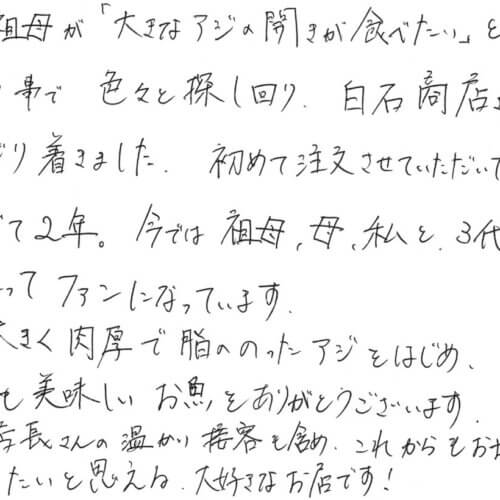 祖母が「大きなアジの開きが食べたい」と
事で色々と探し回り、白石商店
り着きました。初めて注文させていただいて
て2年。今では祖母、母、私と、3代
ってファンになっています。
大きく肉厚で脂ののったアジをはじめ、
も美味しいお魚をありがとうございます。
店長さんの温かい接客も含め、これからもお
たいと思える、大好きなお店です!